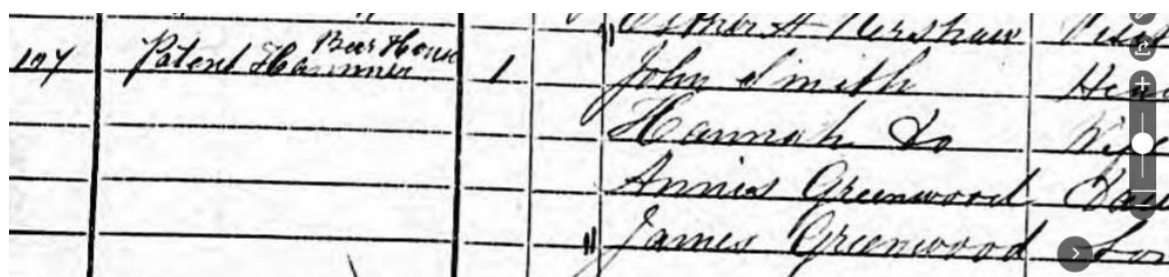 Kershaw
107 Patent Hammer Beer House 1 John Smith Head
Hannah Do Wife
Annie Greenwood
James Greenwood